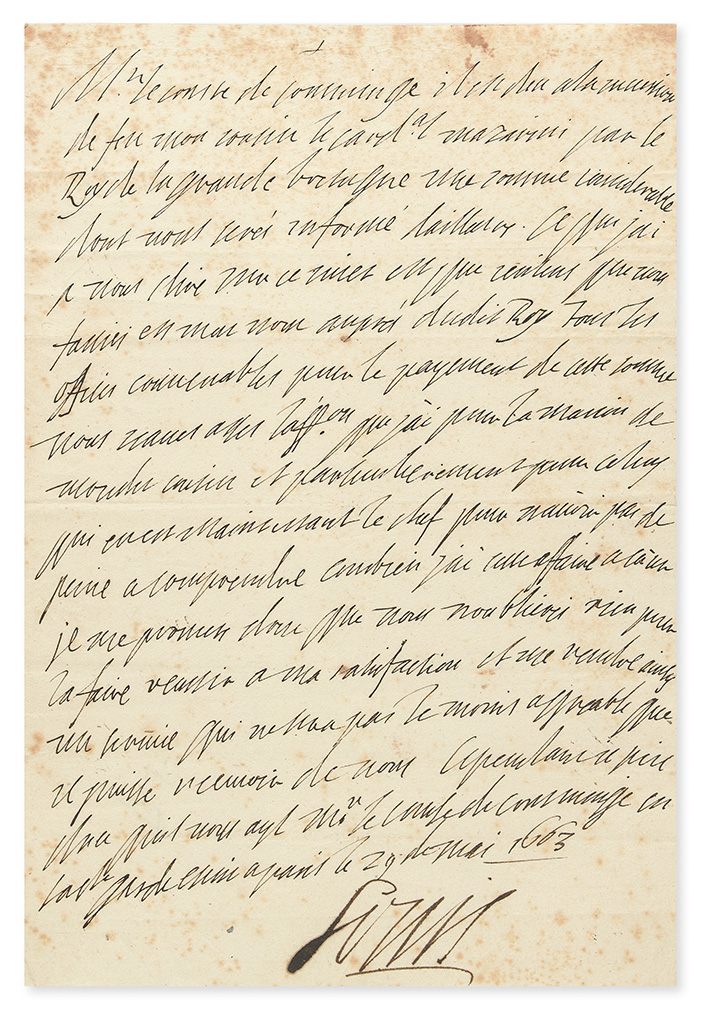 Mr. le comte de Comminge il est deu a la succession
de feu mon cousin le card.al mazarini par le
Roy de la grande bretagne une somme considerable
dont vous serés informé d'ailleurs. Ce que j'ai
a vous dire sur ce sujet est que je veux que vous
fassiés en mon nom auprés dudit Roy tous les
offices convenables pour le payement de cette somme
vous l'aff.on que j'ai pour la maison de
mondit cousin et particulierement pour celuy
qui en est maintenant le chef pour n'avoir pas de
peine a comprendre combien j'ai cette affaire a cœur
je me promets donc que vous n'oublierés rien pour
la faire reussir a ma satisfaction et me rendre ainsy
un service qui ne sera pas le moins agreable que
je puisse recevoir de vous Cependant je prie
dieu qu'il vous ayt Mr. le comte de comminge en
sa s.te garde escrit a paris le 29 de mai 1663
Louis